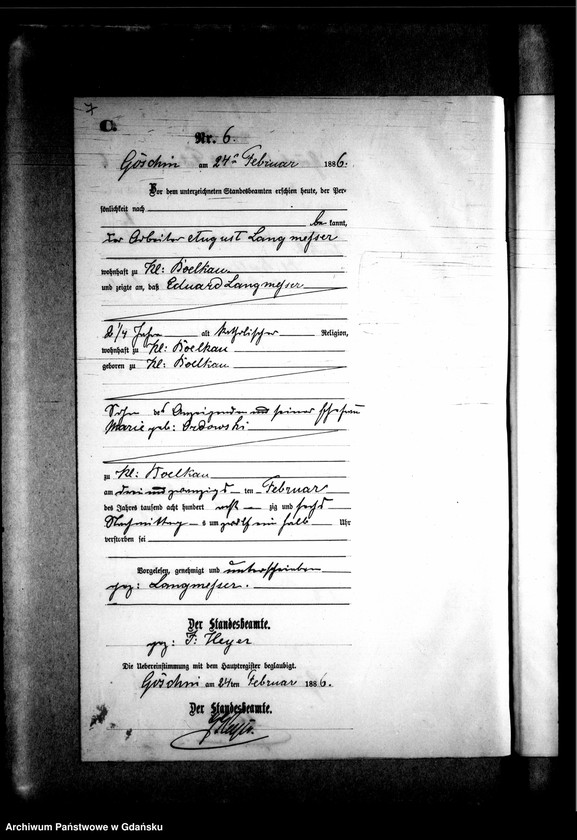 7
C.
Nr. 6.
Göschin am 24ten Februar 1886.
Vor dem unterzeichneten Standesbeamten erschien heute, der Per-
sönlichkeit nach
be kannt,
der Arbeiter August Langmesser
wohnhaft zu Kl: Boelkau
und zeigte an, daß Eduard Langmesser
2 1/4 Jahre alt katholischer Religion,
wohnhaft zu Kl: Boelkau
geboren zu Kl: Boelkau
Sohn des Anzeigenden und seiner Ehefrau
Marie geb: Ordowski
zu Kl: Boelkau
am drei und zwanzigst ten Februar
des Jahres tausend acht hundert acht zig und sechs
Nachmittag s um zwölf ein halb Uhr
verstorben sei
Vorgelesen, genehmigt und unterschrieben
gez: Langmesser.
Der Standesbeamte.
gez: F. Heyer
Die Uebereinstimmung mit dem Hauptregister beglaubigt.
Göschin am 24ten Februar 1886.
Der Standesbeamte.
Heyer.
Archiwum Państwowe w Gdańsku